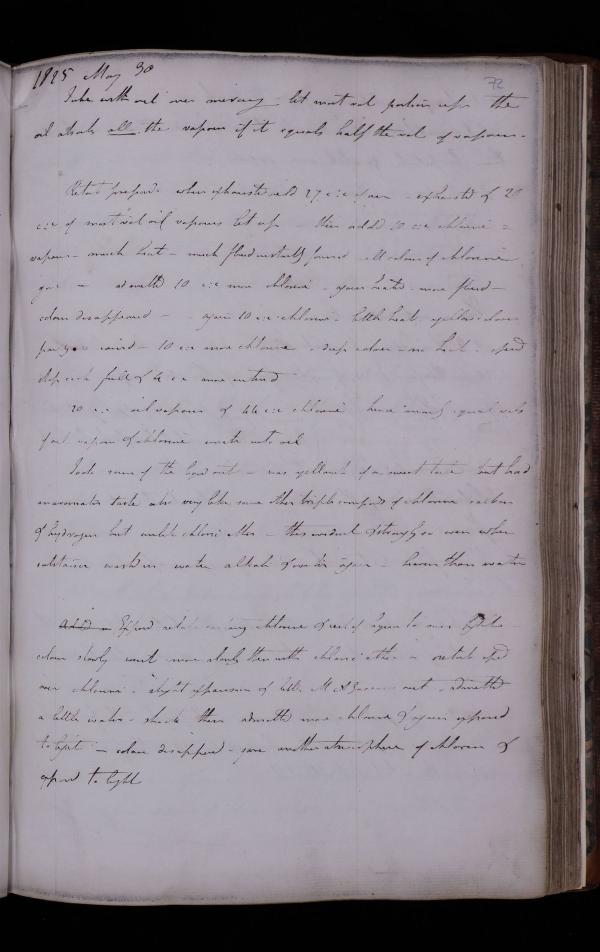 1825 May 30
72
Tube with oil over mercury - let most vol portion up - the
oil absorbs all the vapour if it equals half the vol of vapour -
Retort prepared when exhausted held 27 c:c of air - exhausted & 20
c:c of most vol oil vapour let up - then added 10 c:c chlorine =
vapour - much heat - much fluid instantly formed - all colour of chlorine
gone - admitted 10 c:c more chlorine - again heated - more fluid -
colour disappeared - again 10 c:c chlorine - little heat yellow colour
10 c:c more chlorine - deep colour - no heat - opened
stop cock full & 4 c:c more entered
20 c:c oil vapour & 44 c:c chlorine hence nearly equal vols
of oil vapour & chlorine unite into oil
Took some of the liquid out - was yellowish of a sweet taste but had
an aromatic taste also very like some other triple compounds of chlorine carbon
& hydrogen but unlike chloric ether - this evident & strongly so even when
substance washed in water alkali & water again - heavier than water
Exposed retort containing chlorine & vol of liquor to sun light
colour slowly went more slowly than with chloric ether - retort opened
over chlorine - slight expansion & little M A gas went out - admitted
a little water - shook then admitted more chlorine & again exposed
to light - colour disappeared - gave another atmosphere of chlorine &
exposed to light